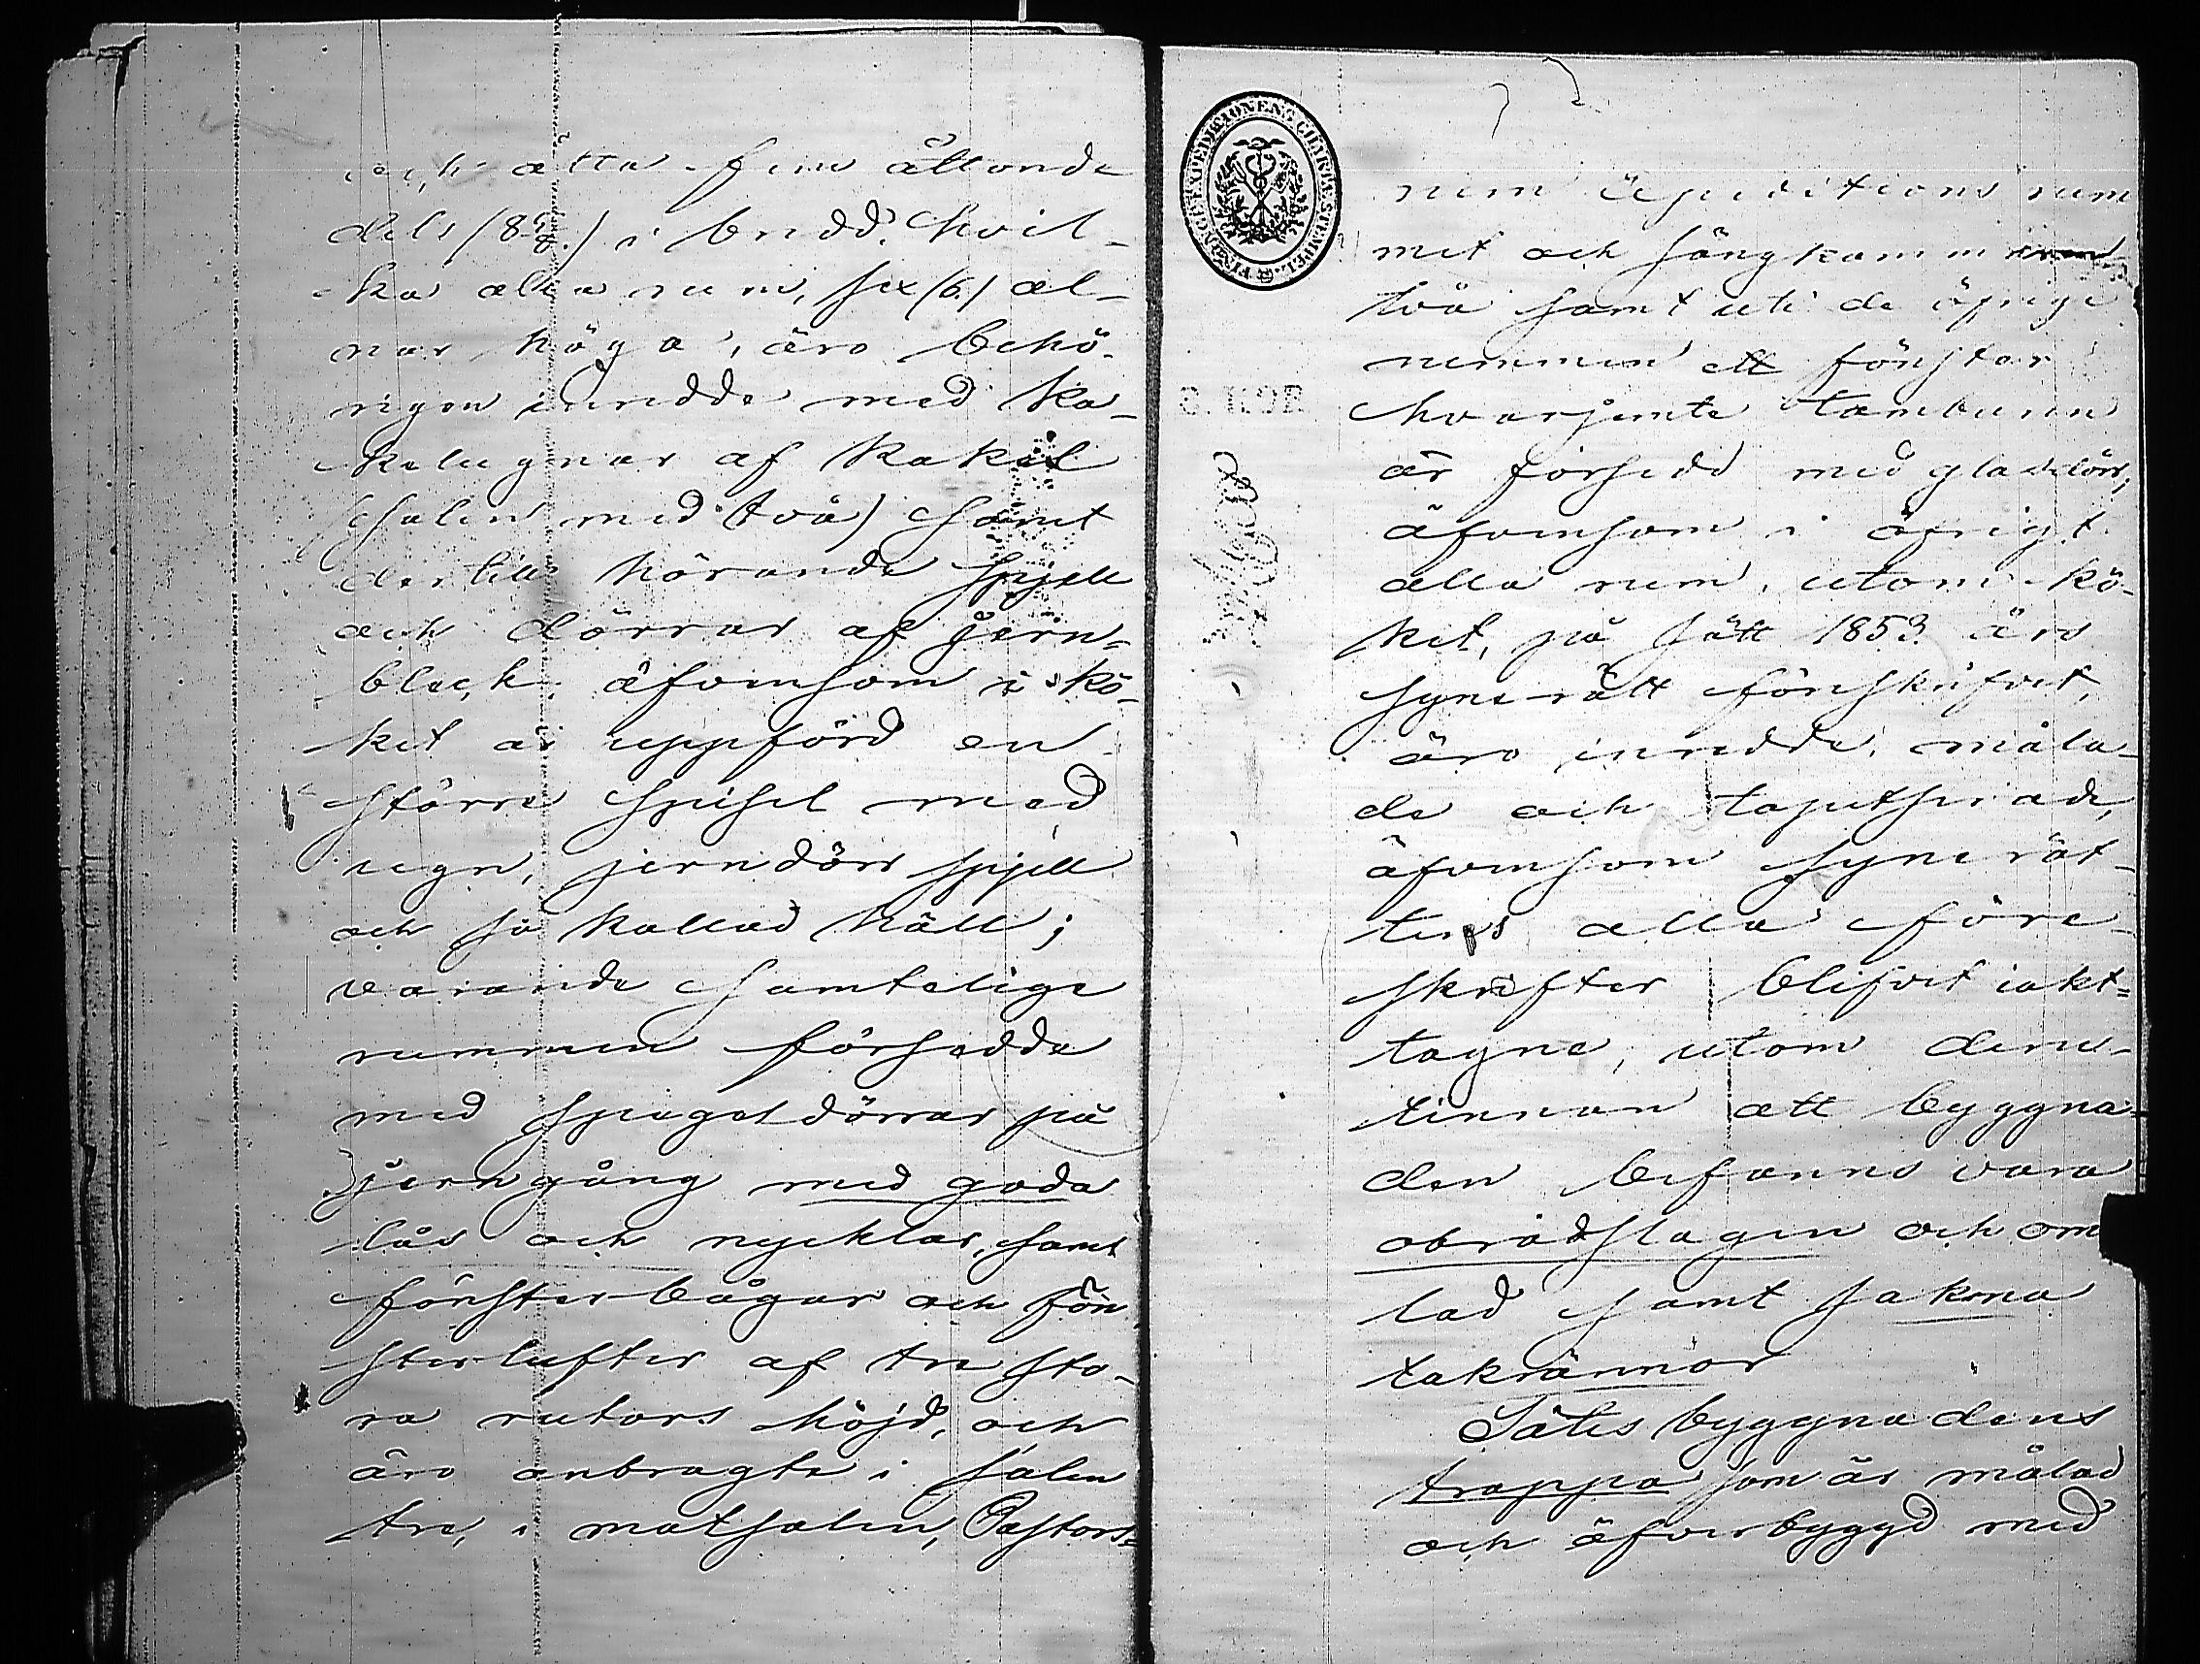 och åtta fem åttonde
dels (8 5/8.) i bredd. Hvil-
ka alla rum, sex (6.) al-
nar höga, äro behö-
rigen inredde med ka-
kelugnar af kakel
(salen med två) samt
dertill hörande spjell
och dörrar af jern-
bleck; äfvensom i kö-
ket är uppförd en
större spisel med
ugn, jerndörr spjell
och så kallad häll;
varande samtelige
rummen försedde
med spegeldörrar på
jerngång med goda
lås och nycklar, samt
fönsterbågar och fön
sterlufter af tre sto-
ra rutors höjd, och
äro anbragte i salen
tre, i matsalen, Pastors-
FINANCE EXPEDITIONENS CHARTÆ STEMPEL.
rum Expeditions rum
met och sängkammaren
två samt uti de öfrige
rummen ett fönster
hvarjemte tamburen
är försedd med glasdörr,
äfvensom i öfrigt
alla rum, utom kö-
ket, på sätt 1853 års
syne-rätt föreskrifvit,
äro inredde, måla-
de och tapetserade,
äfvensom synerät-
tens alla före-
skrifter blifvit iakt-
tagne, utom deru-
tinnan att byggna-
den befanns vara
obrädslagen och omå
lad samt sakna
takrännor
Sätesbyggnadens
trappa som är målad
och öfverbyggd med
8. KOP.